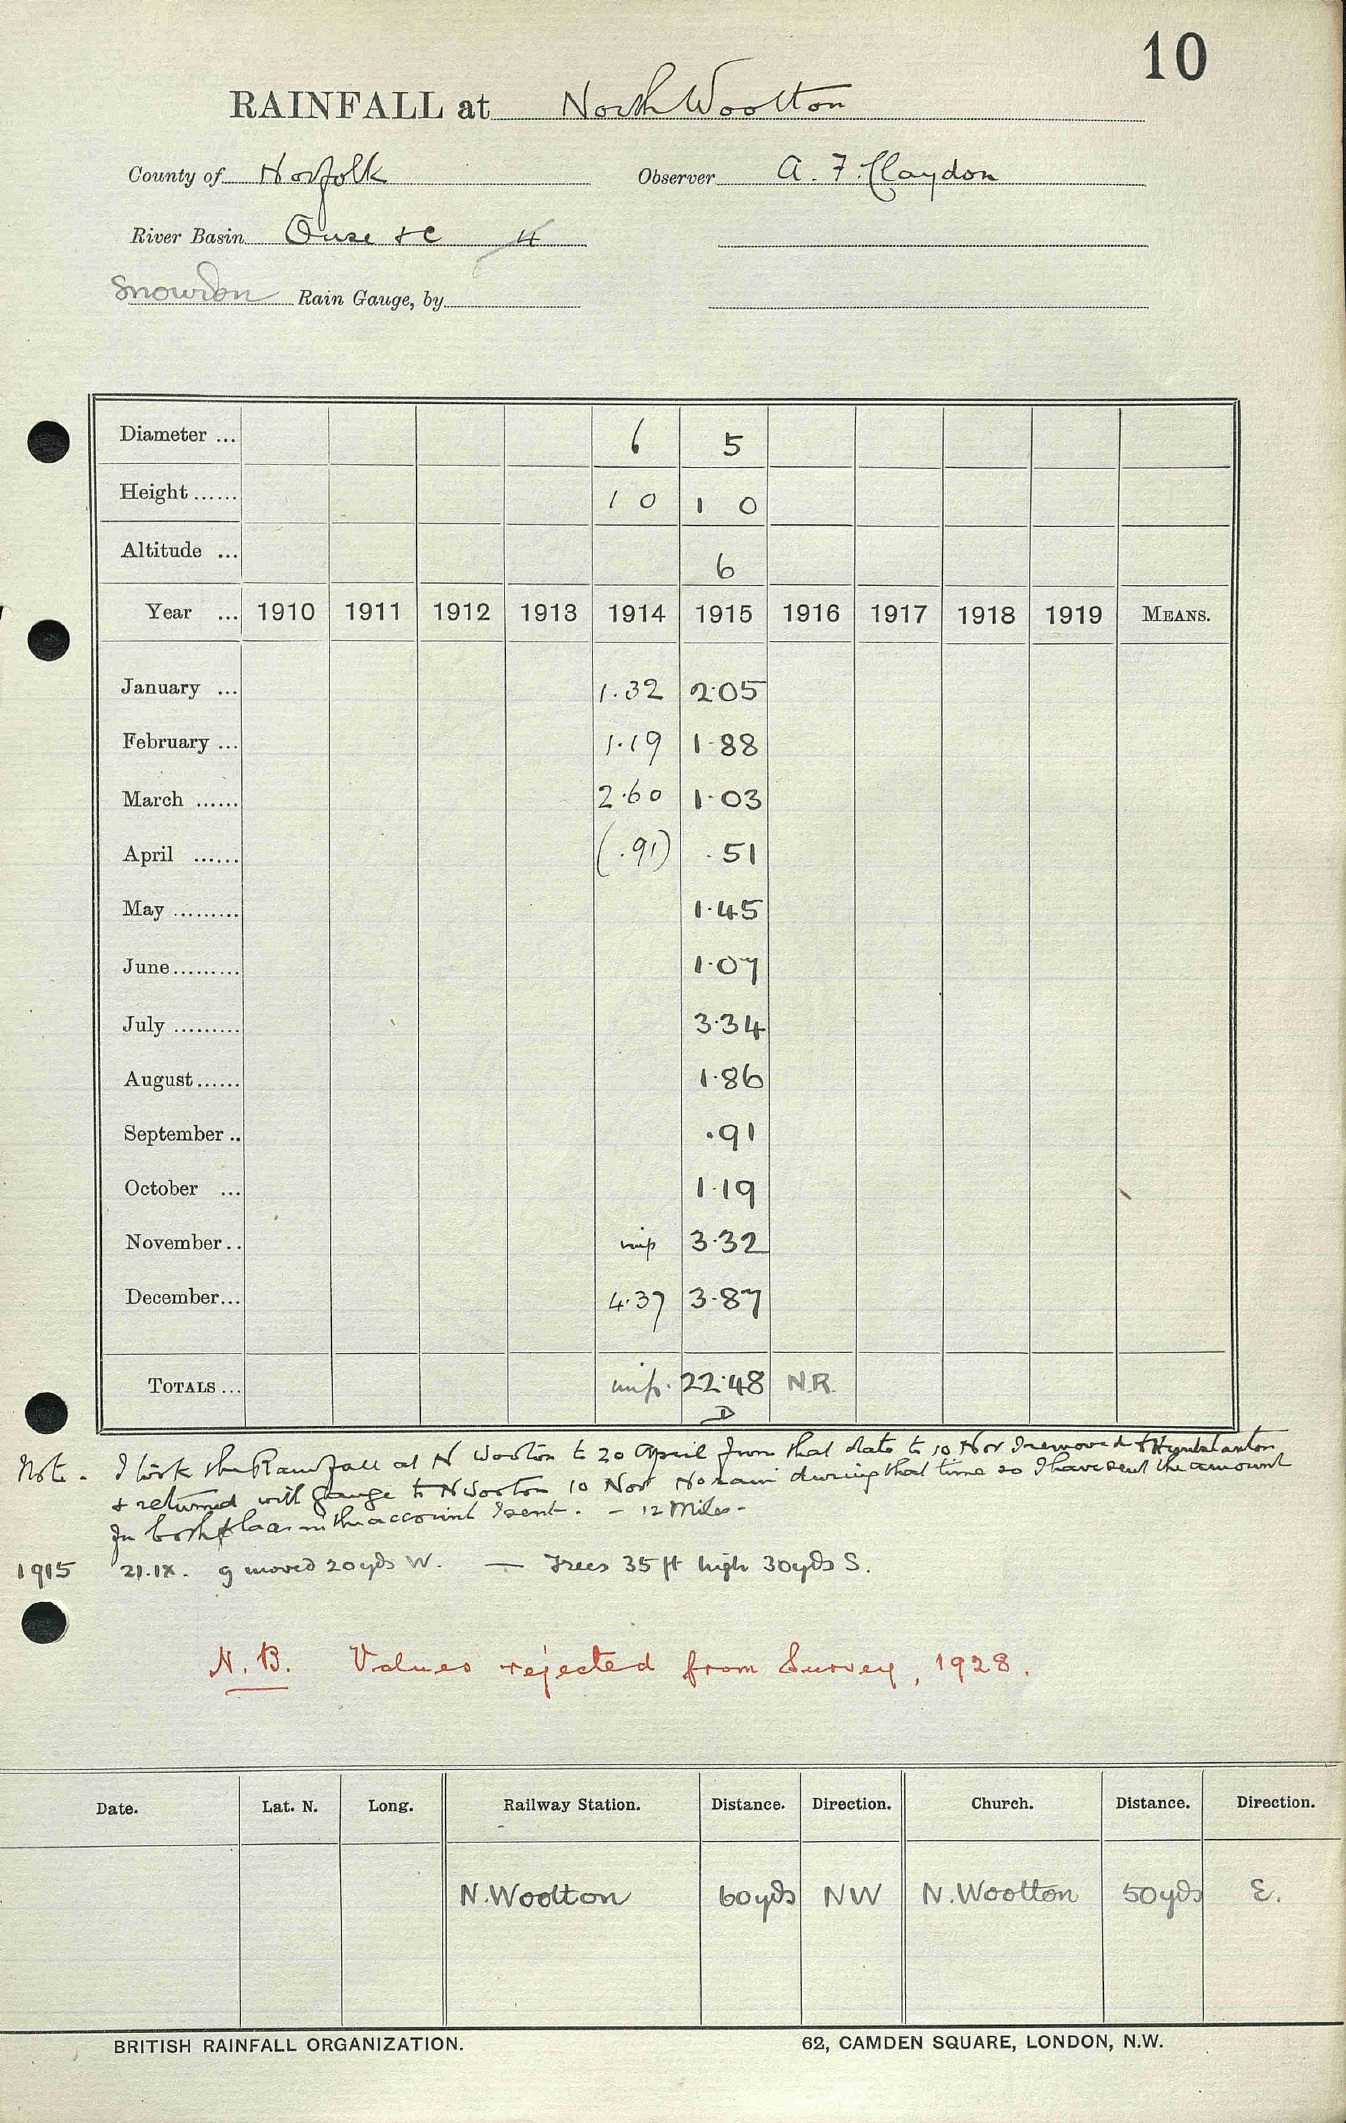 10
RAINFALL at North Wootton
County of Norfolk Observer A. F. Claydon
River Basin Ouse &c 4
Snowdon Rain Gauge, by
Diameter ... 6 5
Height ...... 1 0 1 0
Altitude ... 6
Year ... 1910 1911 1912 1913 1914 1915 1916 1917 1918 1919 MEANS.
January ... 1.32 2.05
February ... 1.19 1.88
March ...... 2.60 1.03
April ...... (.91) .51
May ......... 1.45
June......... 1.07
July ......... 3.34
August...... 1.86
September .. .91
October ... 1.19
November.. 3.32
December... 4.37 3.87
TOTALS ... 22.48 N.R.
D
Note. I took the Rainfall at N Wooton to 20 April from that date to 10 Nov I removed to
& returned with gauge to N Wooton 10 Nov No rain during that time so I have sent the amount
in both places in the account I sent. - 12 Miles -
1915 21.IX. g moved 20yds W. — Trees 35 ft high 30yds S.
N.B. Values rejected from Survey, 1928.
Date. Lat. N. Long. Railway Station. Distance. Direction. Church. Distance. Direction.
N. Wootton 60yds NW N. Wootton 50yds E.
BRITISH RAINFALL ORGANIZATION. 62, CAMDEN SQUARE, LONDON, N.W.